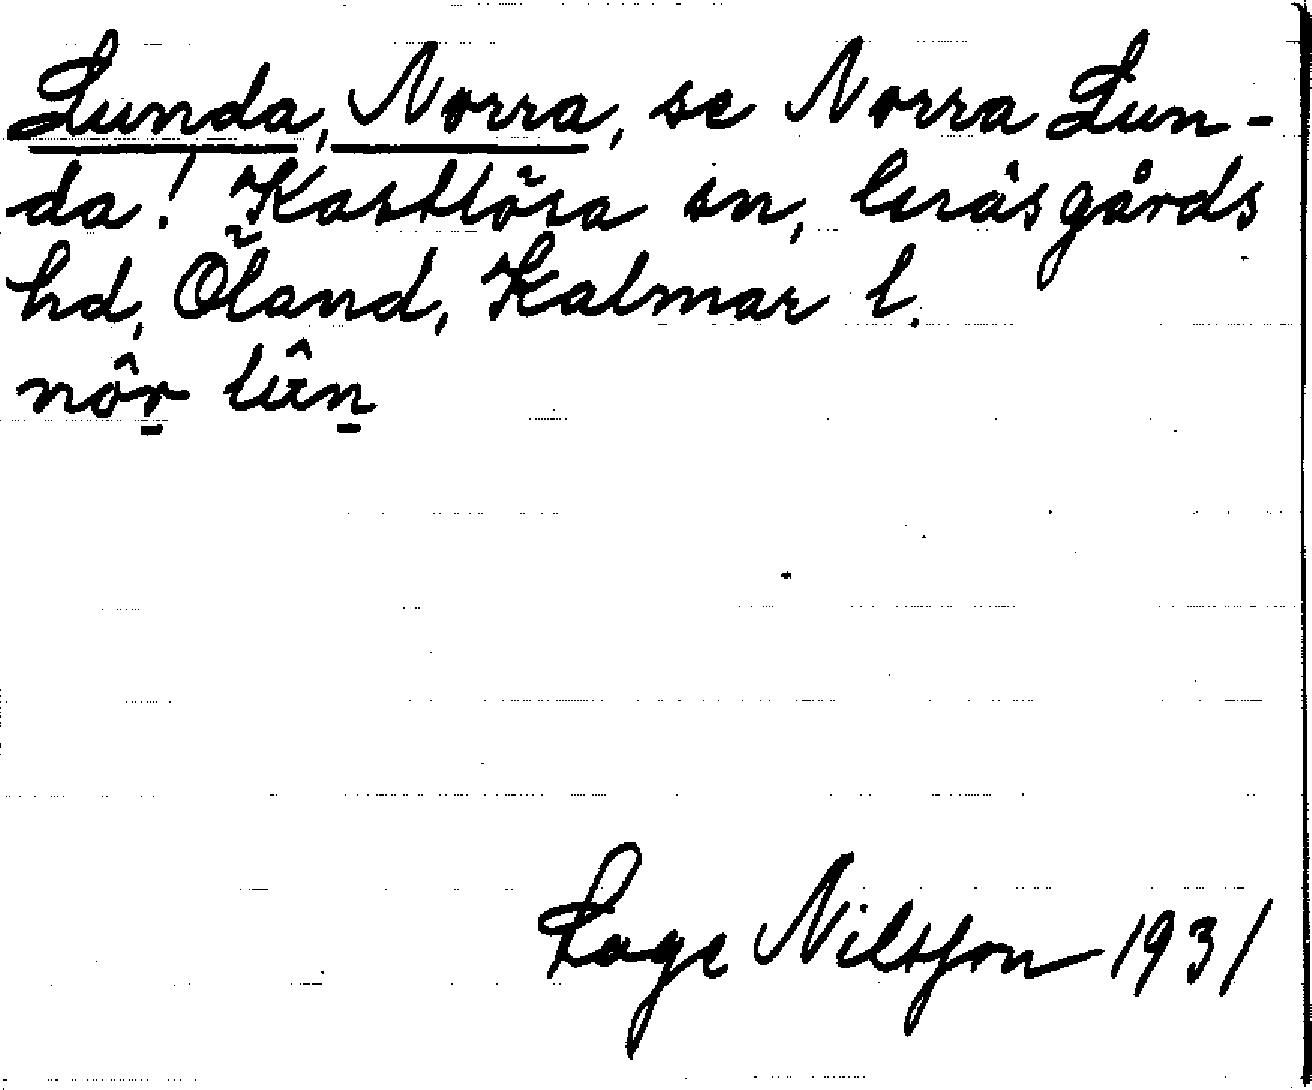 Lunda, Norra, se Norra Lun-
da! Kastlösa sn, Gräsgårds
hd, Öland, Kalmar l.
nôr lûn
Lage Nilsson 1931